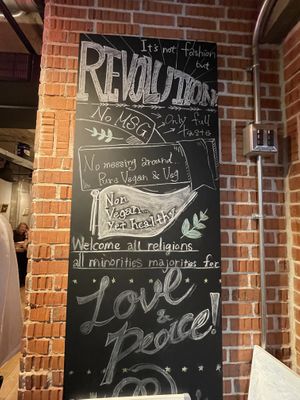 It's not fashion
but
REVOLUTION
No MSG
Only full
taste
No messing around
Pure Vegan & Veg
Non
Vegan...
Yet healthy
Welcome all religions
all minorities majorities for
Love
&
Peace!